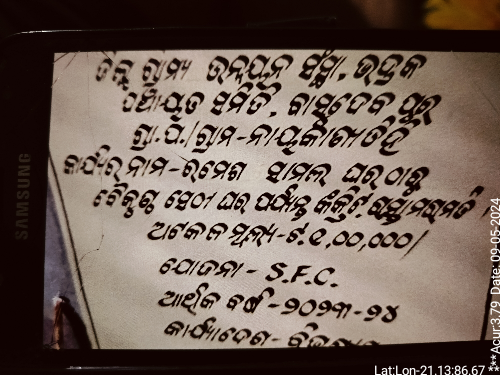 ଜିଲ୍ଲା ଗ୍ରାମ୍ୟ ଉନ୍ନୟନ ସଂସ୍ଥା, ଭଦ୍ରକ
ପଞ୍ଚାୟତ ସମିତି, ବାସୁଦେବ ପୁର
ଗ୍ରା.ପ./ଗ୍ରାମ-ନାୟକାଣୀଡିହି
କାର୍ଯ୍ୟର ନାମ-ରମେଶ ସାମଲ ଘର ଠାରୁ
ବୈକୁଣ୍ଠ ସେଠୀ ଘର ପର୍ଯ୍ୟନ୍ତ କଂକ୍ରିଟ୍ ରାସ୍ତା ମରାମତି
ଅଟକଳ ମୂଲ୍ୟ-ଟ.୧,୦୦,୦୦୦/
ଯୋଜନା - S.F.C.
ଆର୍ଥିକ ବର୍ଷ -୨୦୨୩-୨୪
କାର୍ଯ୍ୟାଦେଶ-
SAMSUNG
Lat:Lon-21.13:86.67
***Acur:3.79 Date: 09-05-2024